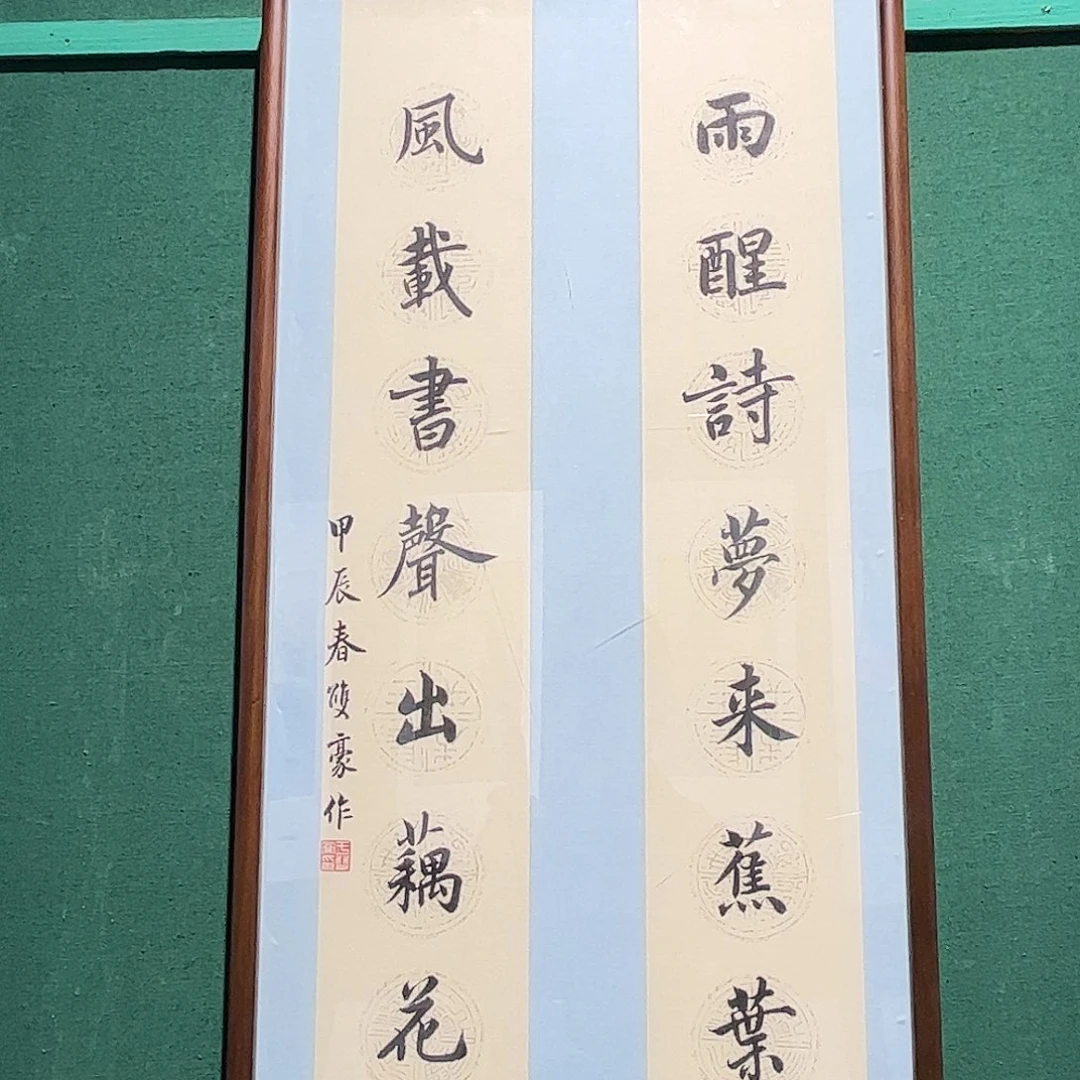 雨醒詩夢来蕉葉
風載書聲出藕花
甲辰春雙豪作